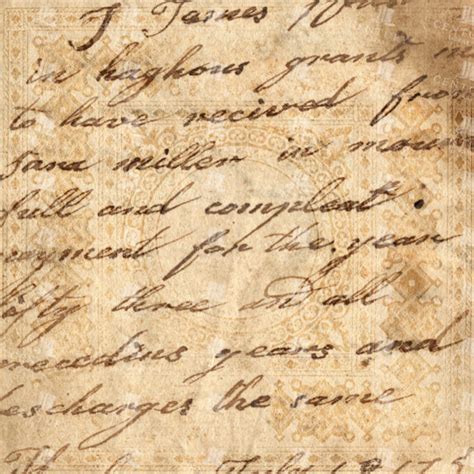 I James
in haghous grants
to have recived from
Sara miller in
full and compleat
ayment for the year
fifty three and all
receedins years and
escharges the same